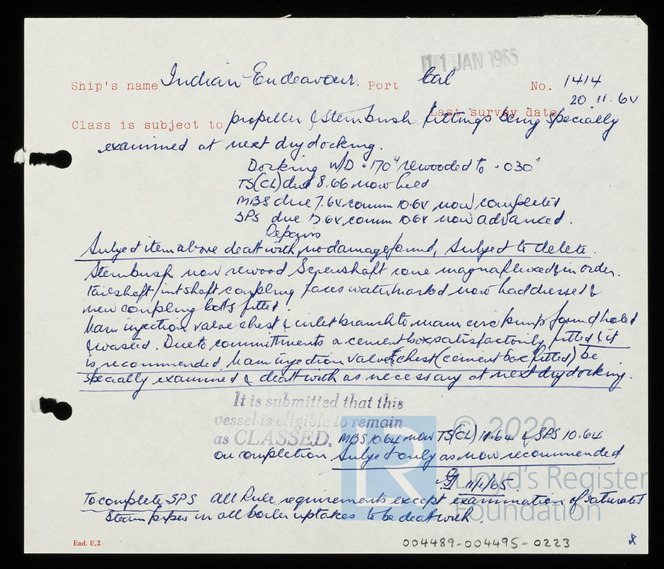 11 JAN 1965
Ship's name Indian Endeavour. Port Cal No. 1414
Last survey date 20.11.64
Class is subject to propeller & sternbush fittings being specially
examined at next dry docking.
Docking W/D .170" rewooded to .030"
TS(CL) due 8.66 now held
MBS due 7.64 comm 10.64 now completed
SPS due 12.64 comm 10.64 now advanced.
Repairs
Subject item above dealt with, no damage found, Subject to delete.
Sternbush now rewood Screwshaft cone magnafluxed in order.
tailshaft/int shaft coupling faces watermarked now had dressed &
new coupling bolts fitted.
Main injection valve chest & inlet branch to main circ pump found holed
& wasted. Due to committments a cement box satisfactorily fitted & it
is recommended, Main injection valve chest (cement box fitted) be
specially examined & dealt with as necessary at next dry docking.
It is submitted that this
vessel is eligible to remain
as CLASSED. MBS 10.64 now TS(CL) 11.64 & SPS 10.64
on completion Subject only as now recommended
11/1/65
To complete SPS all Rule requirements except examination of saturated
steam pipes in all boiler uptakes to be dealt with.
© 2020
Lloyd's Register
Foundation
End. E.2
004489-004495-0223